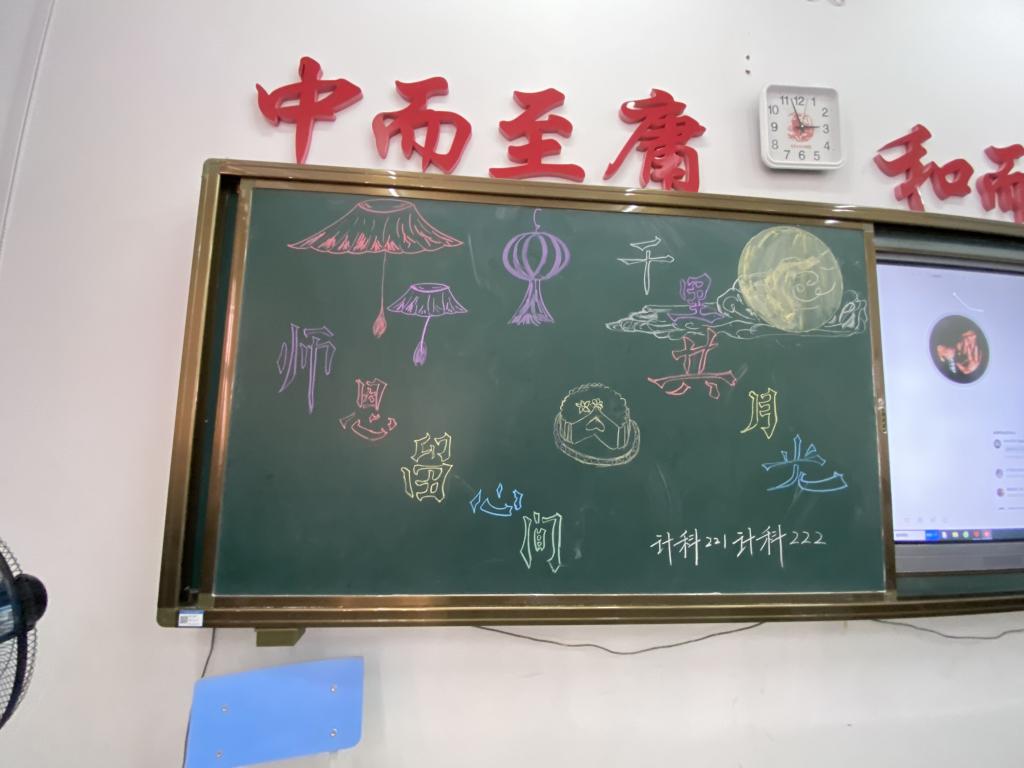 中而至庸
和而
11 12 1
10 2
9 3
8 4
7 6 5
师恩留心间
千里共月光
计科221 计科222